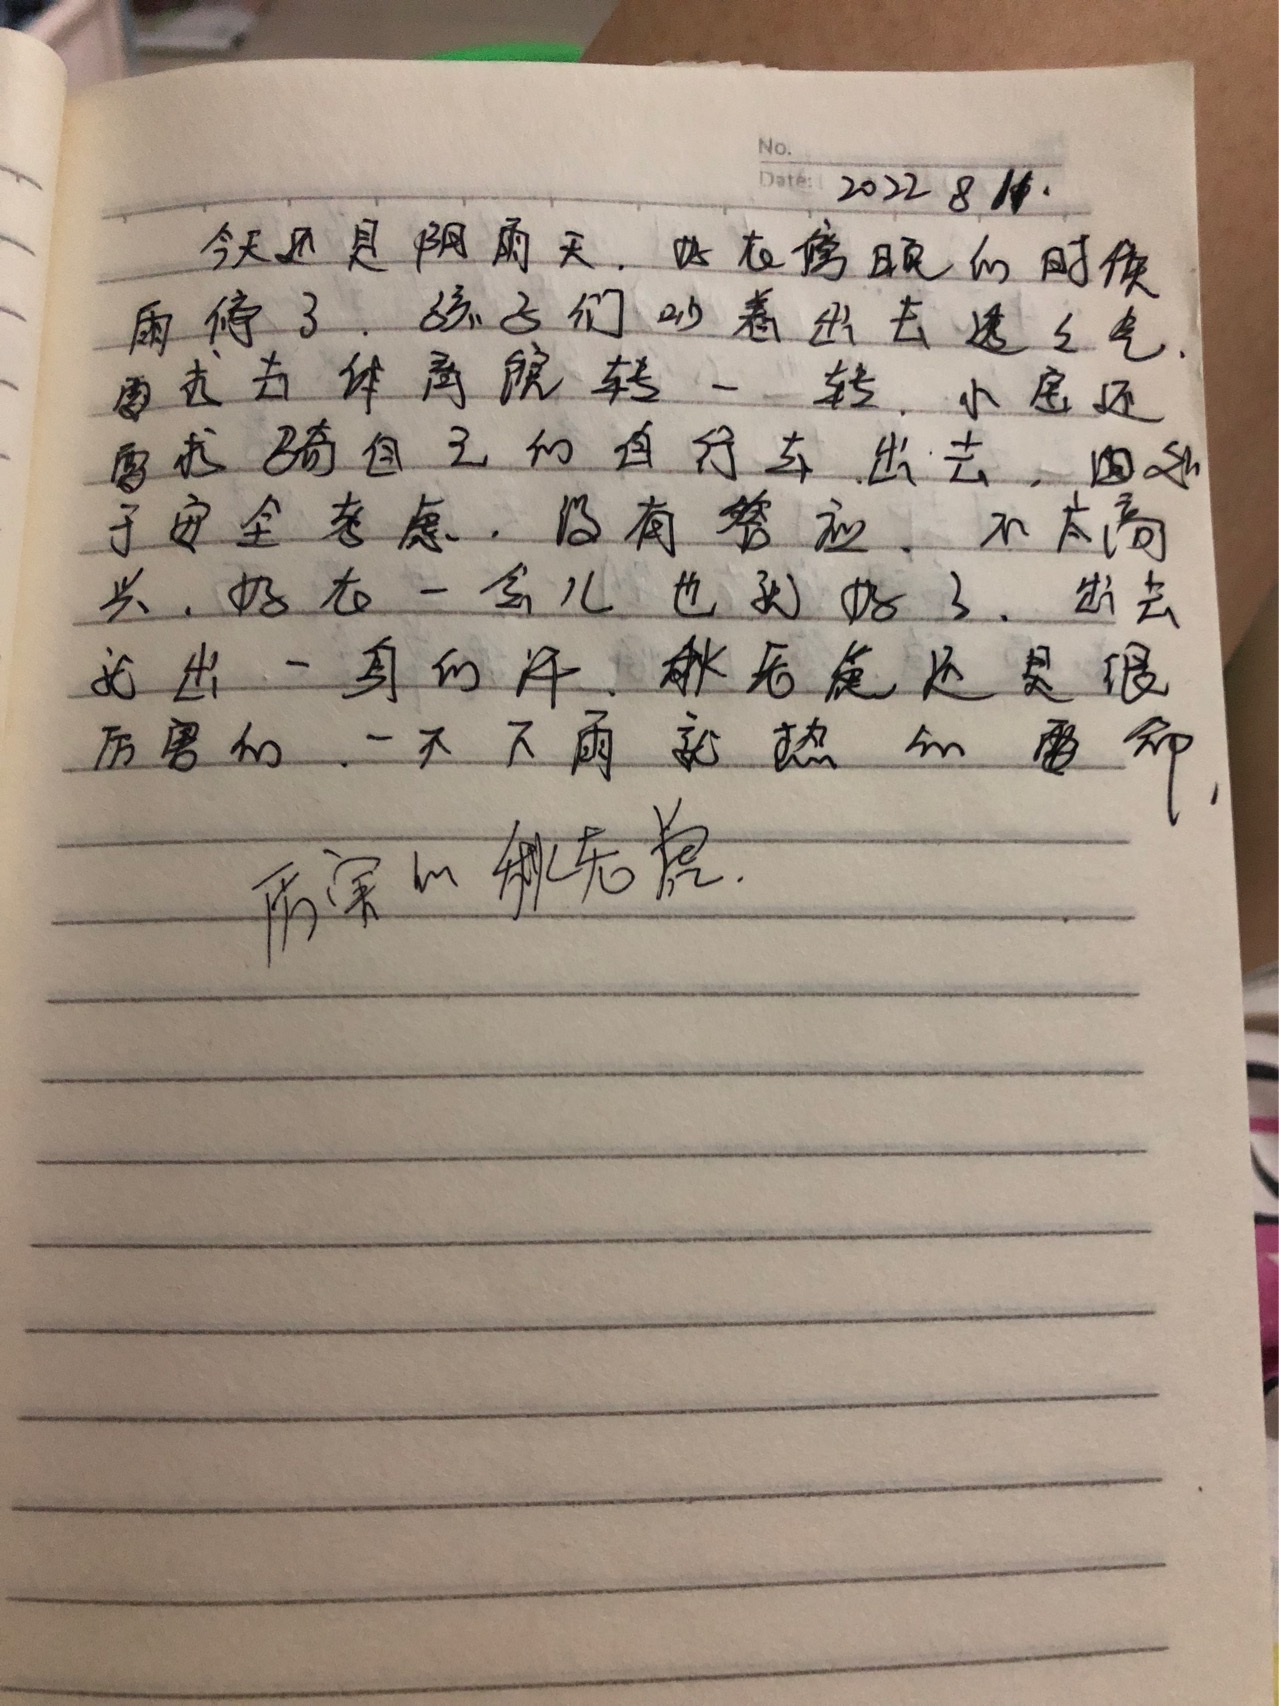 No.
Date: 2022 8 11.
今天还是阴雨天.好在傍晚的时候
雨停了.孩子们吵着出去透透气.
要求去体育院转一转.小宝还
要求骑自己的自行车出去.因为
于安全考虑.没有答应.不太高
兴.好在一会儿也就好了.出去
就出一身的汗.秋老虎还是很
厉害的.一不下雨就热的要命,
厉害的秋老虎.